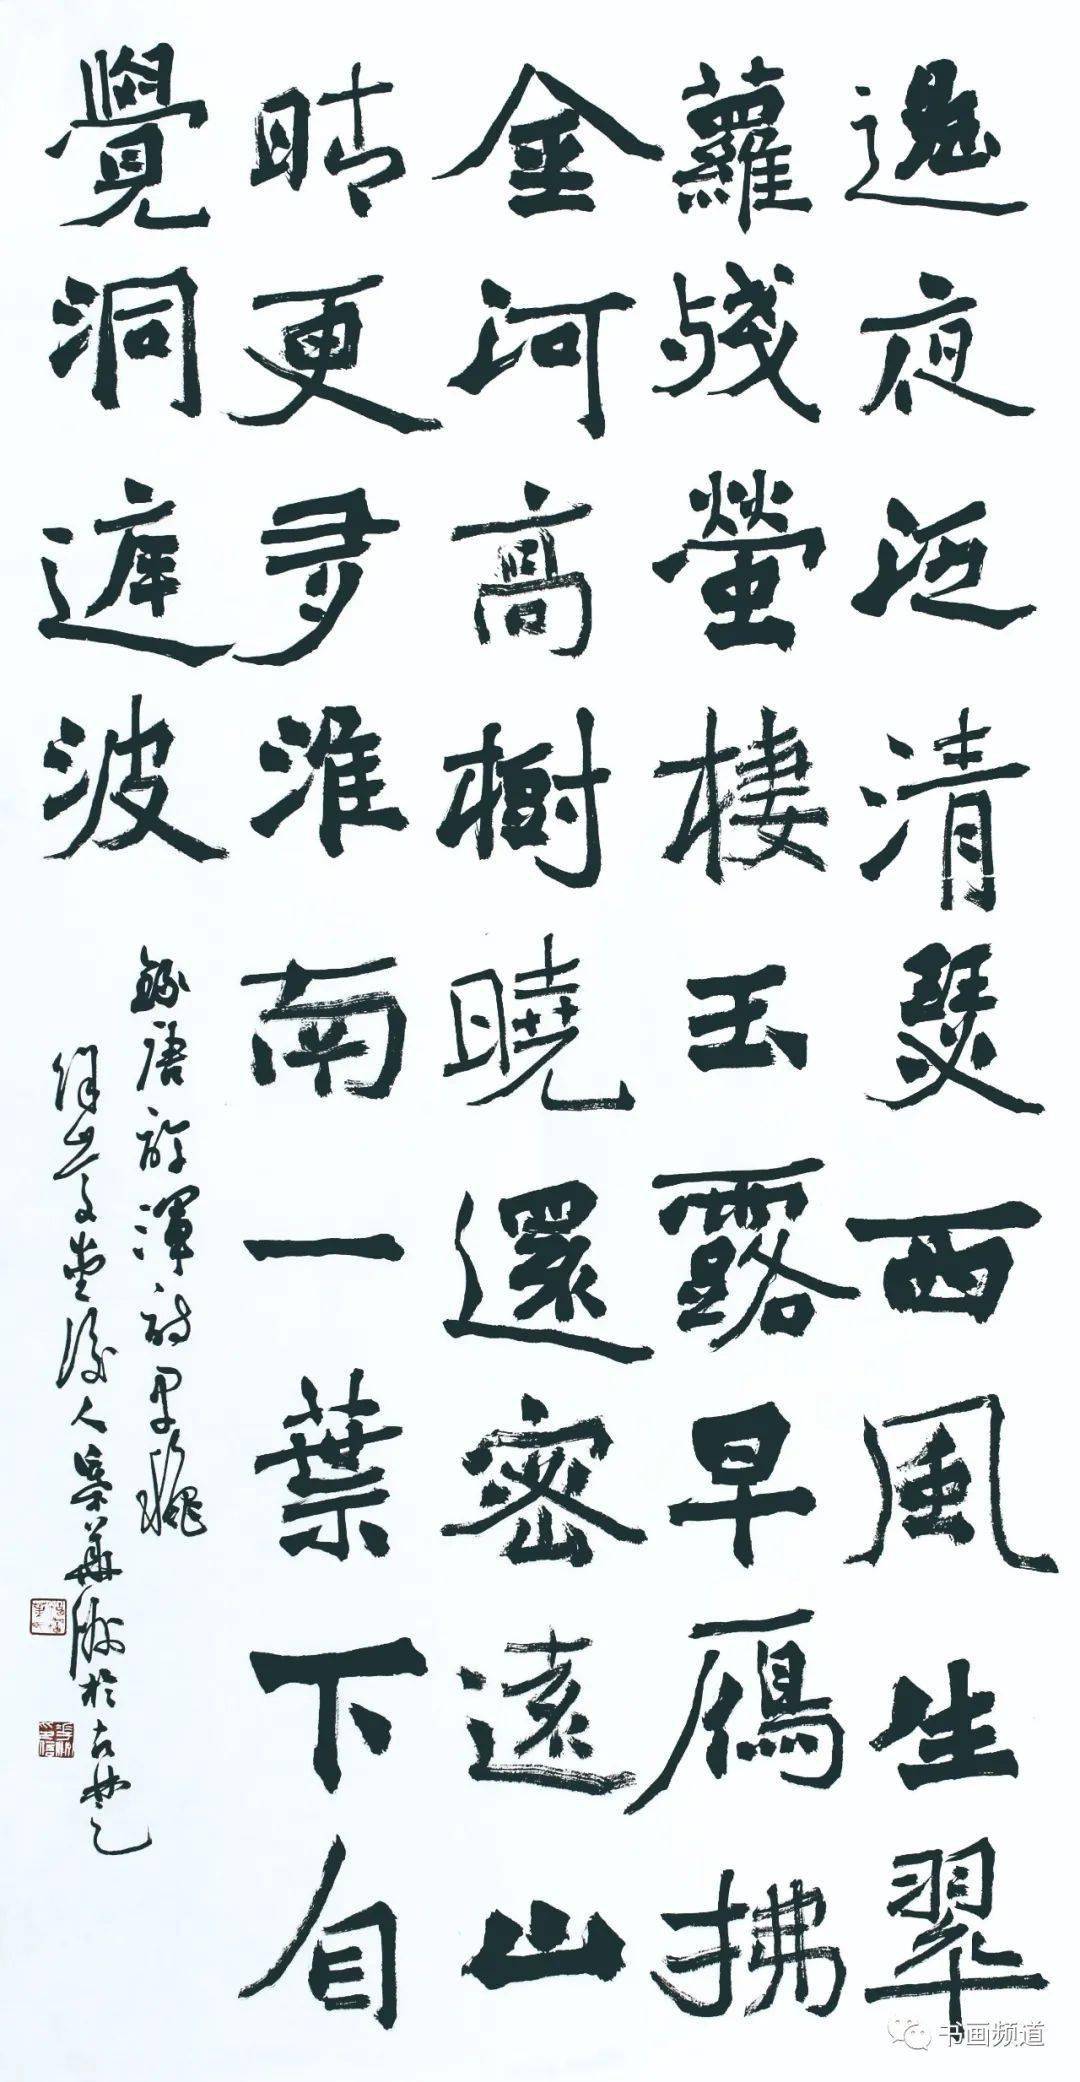 遙夜泛清瑟西風生翠
蘿殘螢棲玉露早鴈拂
金河高樹曉還密遠山
晴更多淮南一葉下自
覺洞庭波
錄唐許渾詩早穐
堂後人吳華於古楚
书画频道